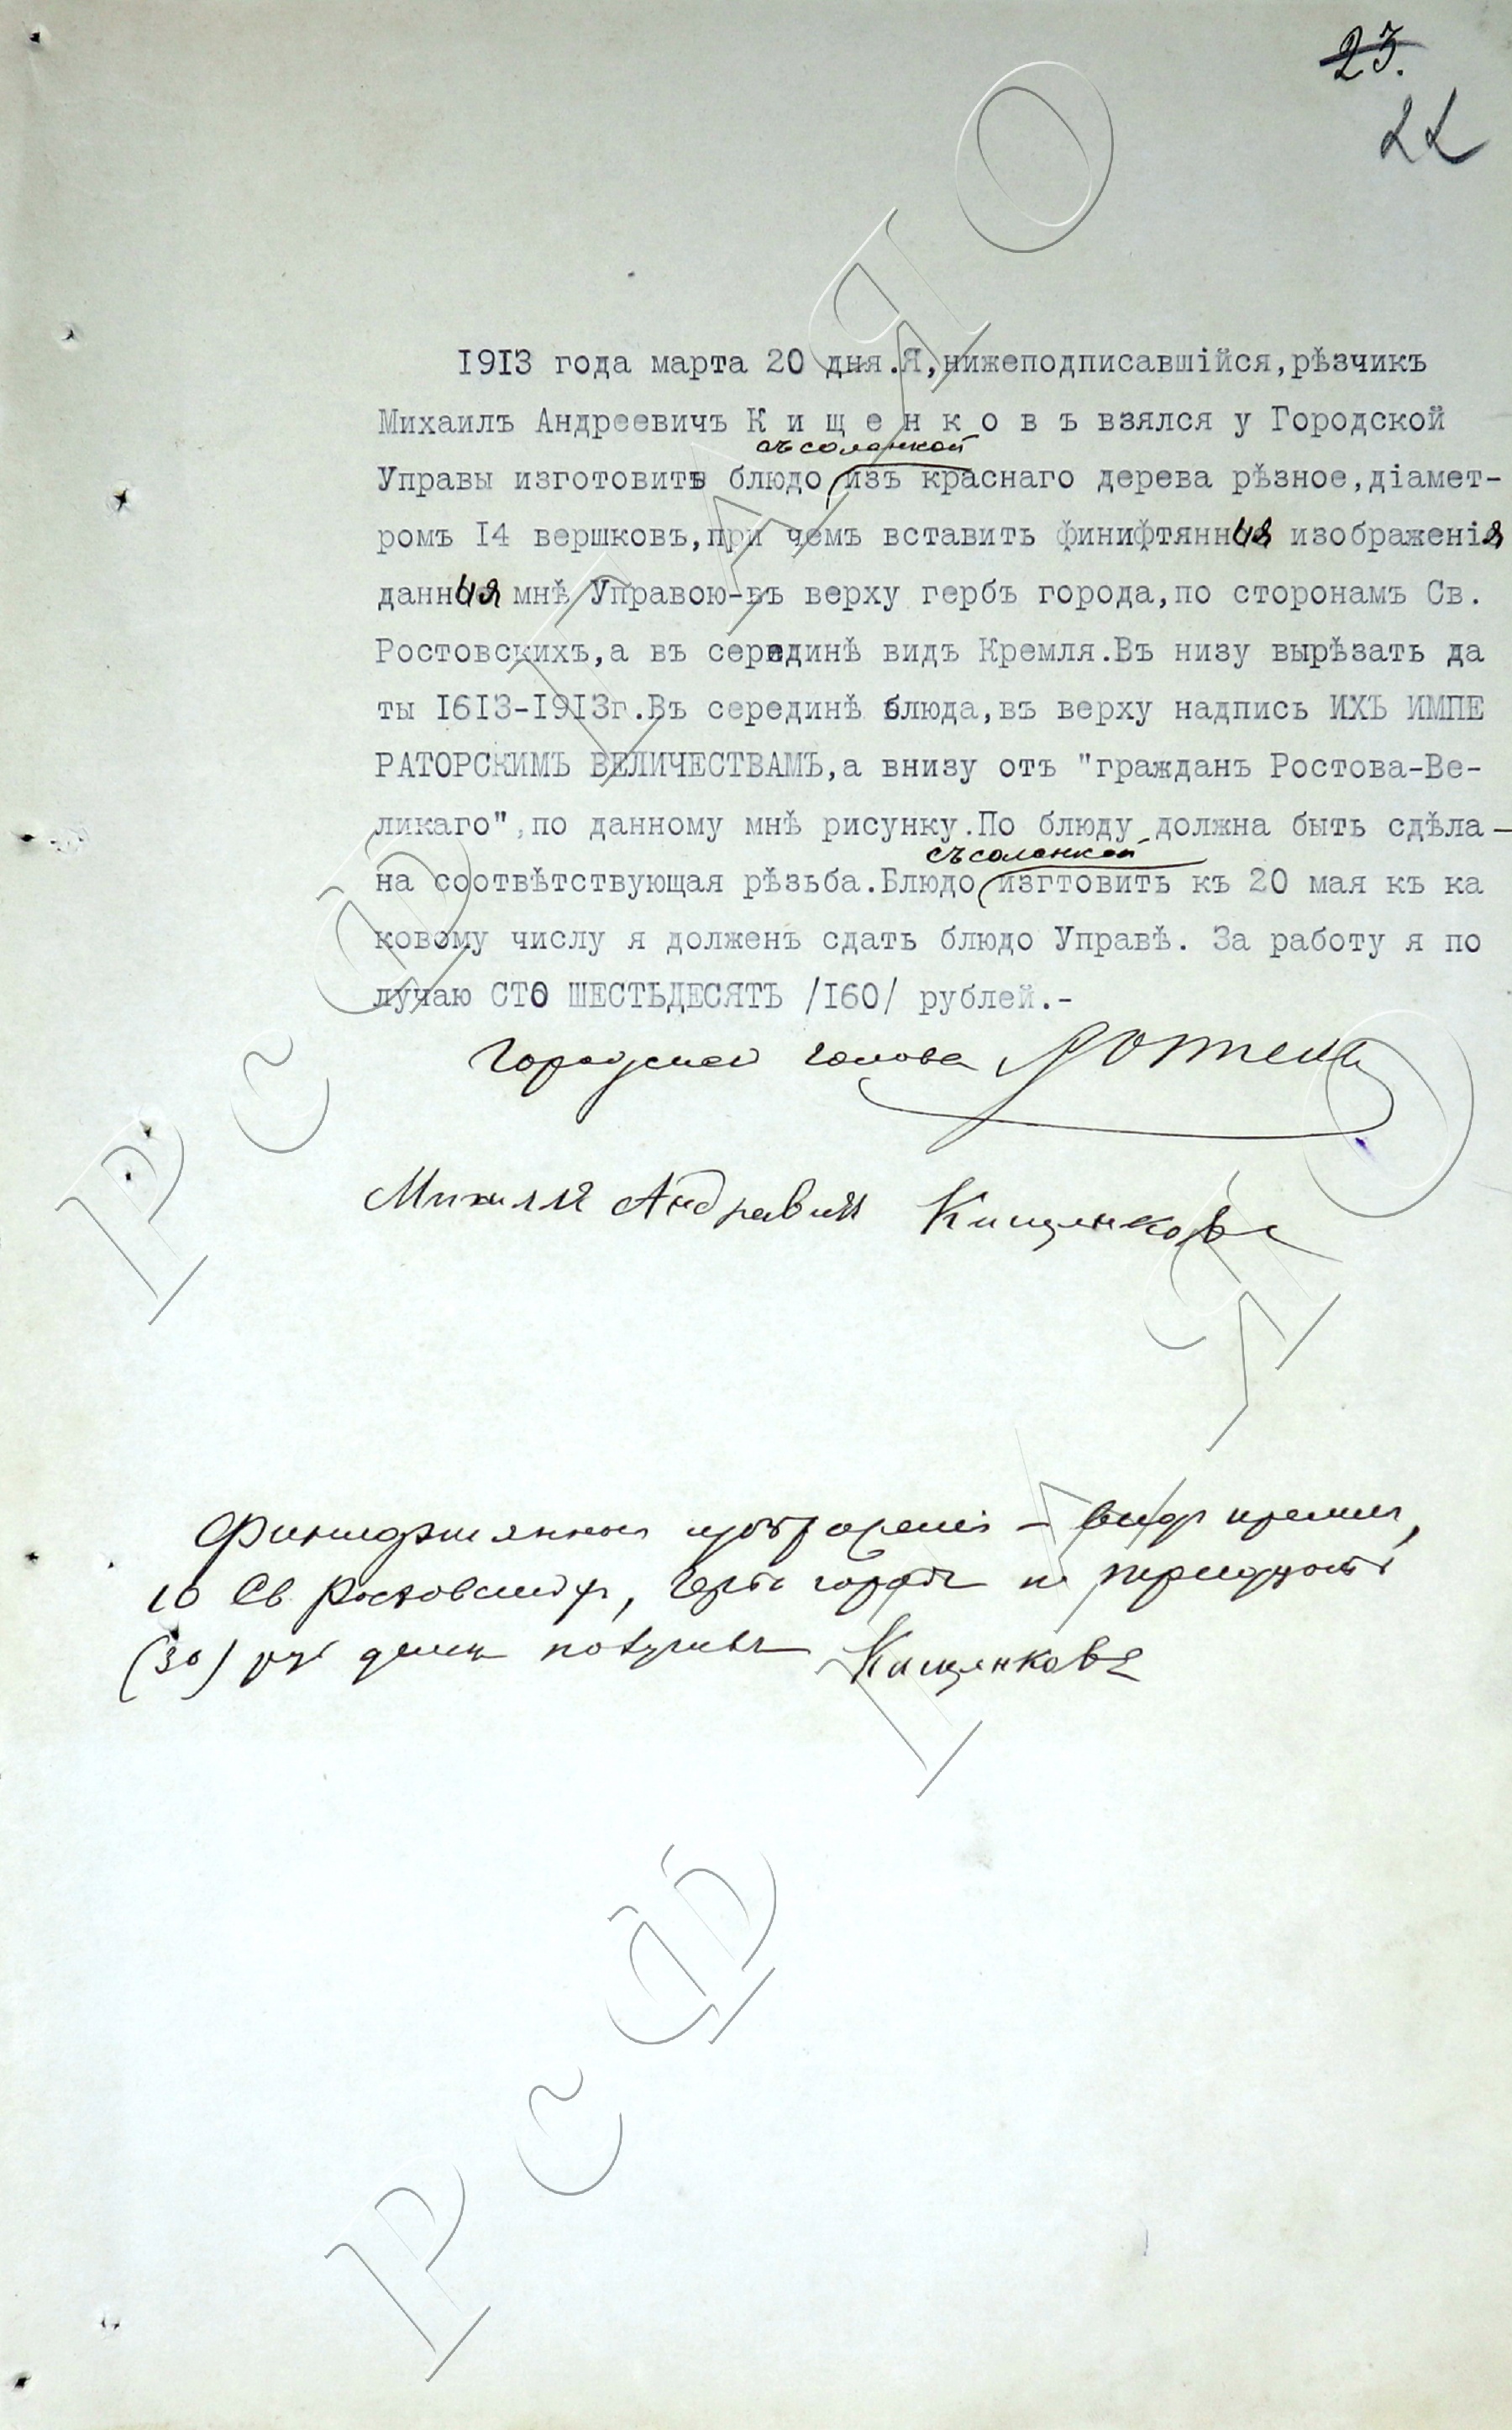 23.
22
1913 года марта 20 дня.Я,нижеподписавшійся,рѣзчикъ
Михаилъ Андреевичъ К и щ е н к о в ъ взялся у Городской
съ солонкой
Управы изготовить блюдо изъ краснаго дерева рѣзное,діамет-
ромъ 14 вершковъ,при чемъ вставить финифтянныя изображенія
данныя мнѣ Управою-въ верху гербъ города,по сторонамъ Св.
Ростовскихъ,а въ серединѣ видъ Кремля.Въ низу вырѣзать да
ты 1613-1913г.Въ серединѣ блюда,въ верху надпись ИХЪ ИМПЕ
РАТОРСКИМЪ ВЕЛИЧЕСТВАМЪ,а внизу отъ "гражданъ Ростова-Ве-
ликаго",по данному мнѣ рисунку.По блюду должна быть сдѣла-
съ солонкой
на соотвѣтствующая рѣзьба.Блюдо изгтовить къ 20 мая къ ка
ковому числу я долженъ сдать блюдо Управѣ. За работу я по
лучаю СТО ШЕСТЬДЕСЯТЪ /160/ рублей.-
Городской голова
Михаилъ Андреевичъ Кищенковъ
Финифтянныя изображенія - видъ кремля,
10 Св Ростовскихъ, гербъ города и тридцать
(30) руб денегъ получилъ Кищенковъ
РсФ ГАЯО
РсФ ГАЯО